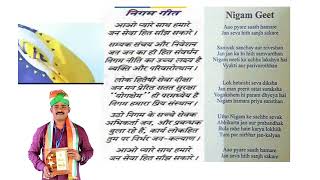 निगम गीत
आओ प्यारे साथ हमारे
जन सेवा हित साँझ सकारे ।
सम्यक संचय और निवेशन
जन जन का ही हित संवर्धन
निगम नीति का उच्च लक्ष्य है
व्यक्ति और परिवारोत्थान ।
लोक हितैषी सेवा दीक्षा
जन मन प्रेरित सतत सुरक्षा
"योगक्षेम" ही पाथध्येय है
निगम हमारा प्रिय संस्थान ।
उठो निगम के सच्चे सेवक
अभिकर्ता जन, और प्रबन्धक
बुला रहे हैं, कार्य लोकहित
तुम पर निर्भर जन-कल्याण ।
आओ प्यारे साथ हमारे
जन सेवा हित साँझ सकारे ।
Nigam Geet
Aao pyare saath hamare
Jan seva hith sanjh sakare
Samyak sanchay aur niveshan
Jan jan ka hi hith sanvardhan
Nigam neeti ka uchcha lakshya hai
Vyakti aur parivarothan
Lok hetaishi seva diksha
Jan man prerit satat suraksha
Yogakshem hi dhyeya hai
Nigam hamara priya sansthan
Utho Nigam ke sachhe sevak
Abhikarta jan aur prabandhak
Bula rahe hain karya lokhith
Tum par nirbhar jan-kalyan
Aao pyare saath hamare
Jan seva hith sanjh sakare